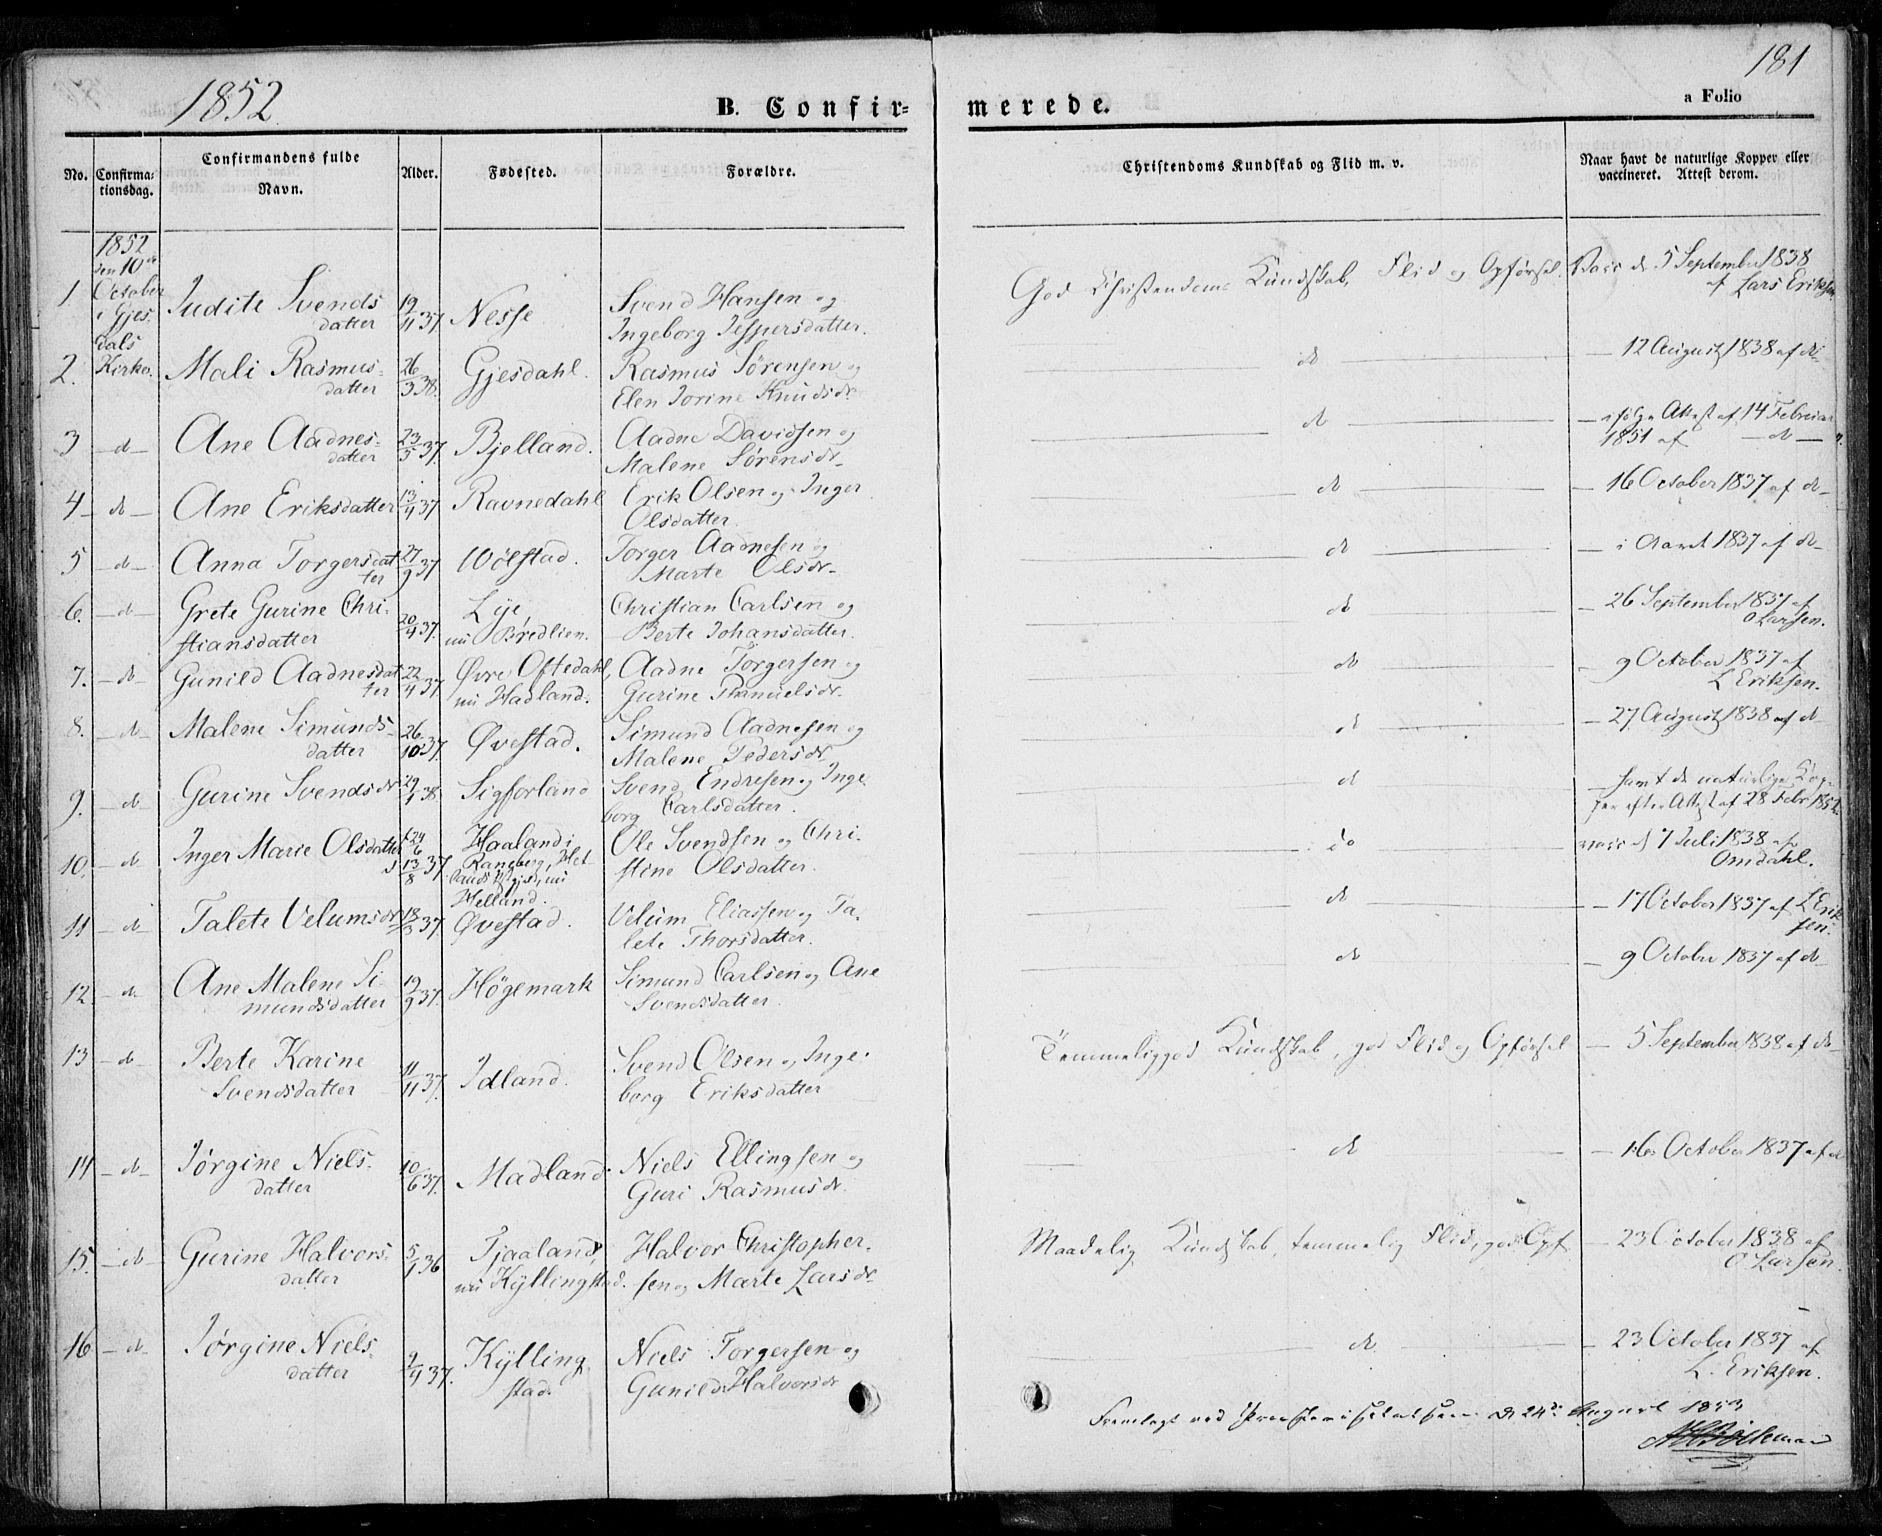 181
1852.
B. Confir=
merede.
a Folio
No.
Confirma=
tionsdag.
Confirmandens fulde
Navn.
Alder.
Fødested.
Forældre.
Christendoms Kundskab og Flid m. v.
Naar havt de naturlige Kopper eller
vaccineret. Attest derom.
1852
den 10de
October
i Gjes-
dals
Kirke.
1. Judite Svends
datter
19/11 37. Nesse
Svend Hansen og
Ingeborg Jespersdatter.
God Christendoms Kundskab, Flid og Opførsel.
Vacc. d. 5 September 1838
af Lars Eriksen
2. Mali Rasmus-
datter
26/3 38. Gjesdahl.
Rasmus Sørensen og
Elen Jorine Knudsdr.
do
12 August 1838 af do
3 - do - Ane Aadnes-
datter
23/5 37. Bjelland.
Aadne Davidsen og
Malene Sørensdr.
do
ifølge Attest af 14 Februar
1851 af - do -
4 - do - Ane Eriksdatter
13/4 37 Ravnedahl
Erik Olsen og Inger
Olsdatter.
do
16 October 1837 af do
5 - do - Anna Torgersdat
ter
27/9 37 Wølstad.
Torger Aadnesen og
Marte Olsdr.
do
i Aaret 1837 af do
6. - do - Grete Gurine Chri-
stiansdatter
20/4 37. Lye,
nu Brødlien.
Christian Carlsen og
Berte Johansdatter.
do
26 September 1837 af
O Larsen.
7. - do - Gunild Aadnesdat
ter
22/4 37 Øvre Oftedahl,
nu Hadland.
Aadne Torgersen og
Gurine Thanielsdr.
do
9 October 1837 af
L Eriksen.
8. - do - Malene Simunds-
datter
26/10 37. Øvestad.
Simund Aadnesen og
Malene Pedersdr.
do
27. August 1838 af do
9. - do Gurine Svendsdr
29/1 38. Sigforland
Svend Endresen og Inge
borg Carlsdatter.
do
havt de naturlige Kop-
per efter Attest af 28 Febr 1852.
10. - do Inger Marie Olsdatter
24/6
13/8 37. Haaland i
Raneberg, Het
lands Pgjeld, nu
Helland.
Ole Svendsen og Chri-
stine Olsdatter.
do
vacc. d 7 Juli 1838 af
Omdahl.
11 - do - Talete Velumsdr
18/8 37. Øvestad.
Velum Eliassen og Ta-
lete Thorsdatter.
do
17 October 1837 af L Erik
sen.
12 - do Ane Malene Si-
mundsdatter
19/9 37. Høgemark
Simund Carlsen og Ane
Svendsdatter.
do
9 October 1837 af do
13 - do Berte Karine
Svendsdatter
11/11 37. Idland.
Svend Olsen og Inge-
borg Eriksdatter
Temmelig god Kundskab, god Flid og Opførsel
5 September 1838 af do
14 - do - Jørgine Niels-
datter
10/6 37. Madland.
Niels Ellingsen og
Guri Rasmusdr.
do
16 October 1837 af do
15. - do - Gurine Halvors-
datter
5/1 36 Tjaaland,
nu Kyllingstad.
Halvor Christopher-
sen og Marte Larsdr.
Maadelig Kundskab, temmelig Flid, god Opf
23 October 1838 af
O Larsen.
16 - do - Jørgine Niels-
datter
9/4 37. Kylling-
stad.
Niels Torgersen og
Gunild Halvorsdr
do
23 October 1837 af
L. Eriksen.
Fremlagt ved den 24de August 1853